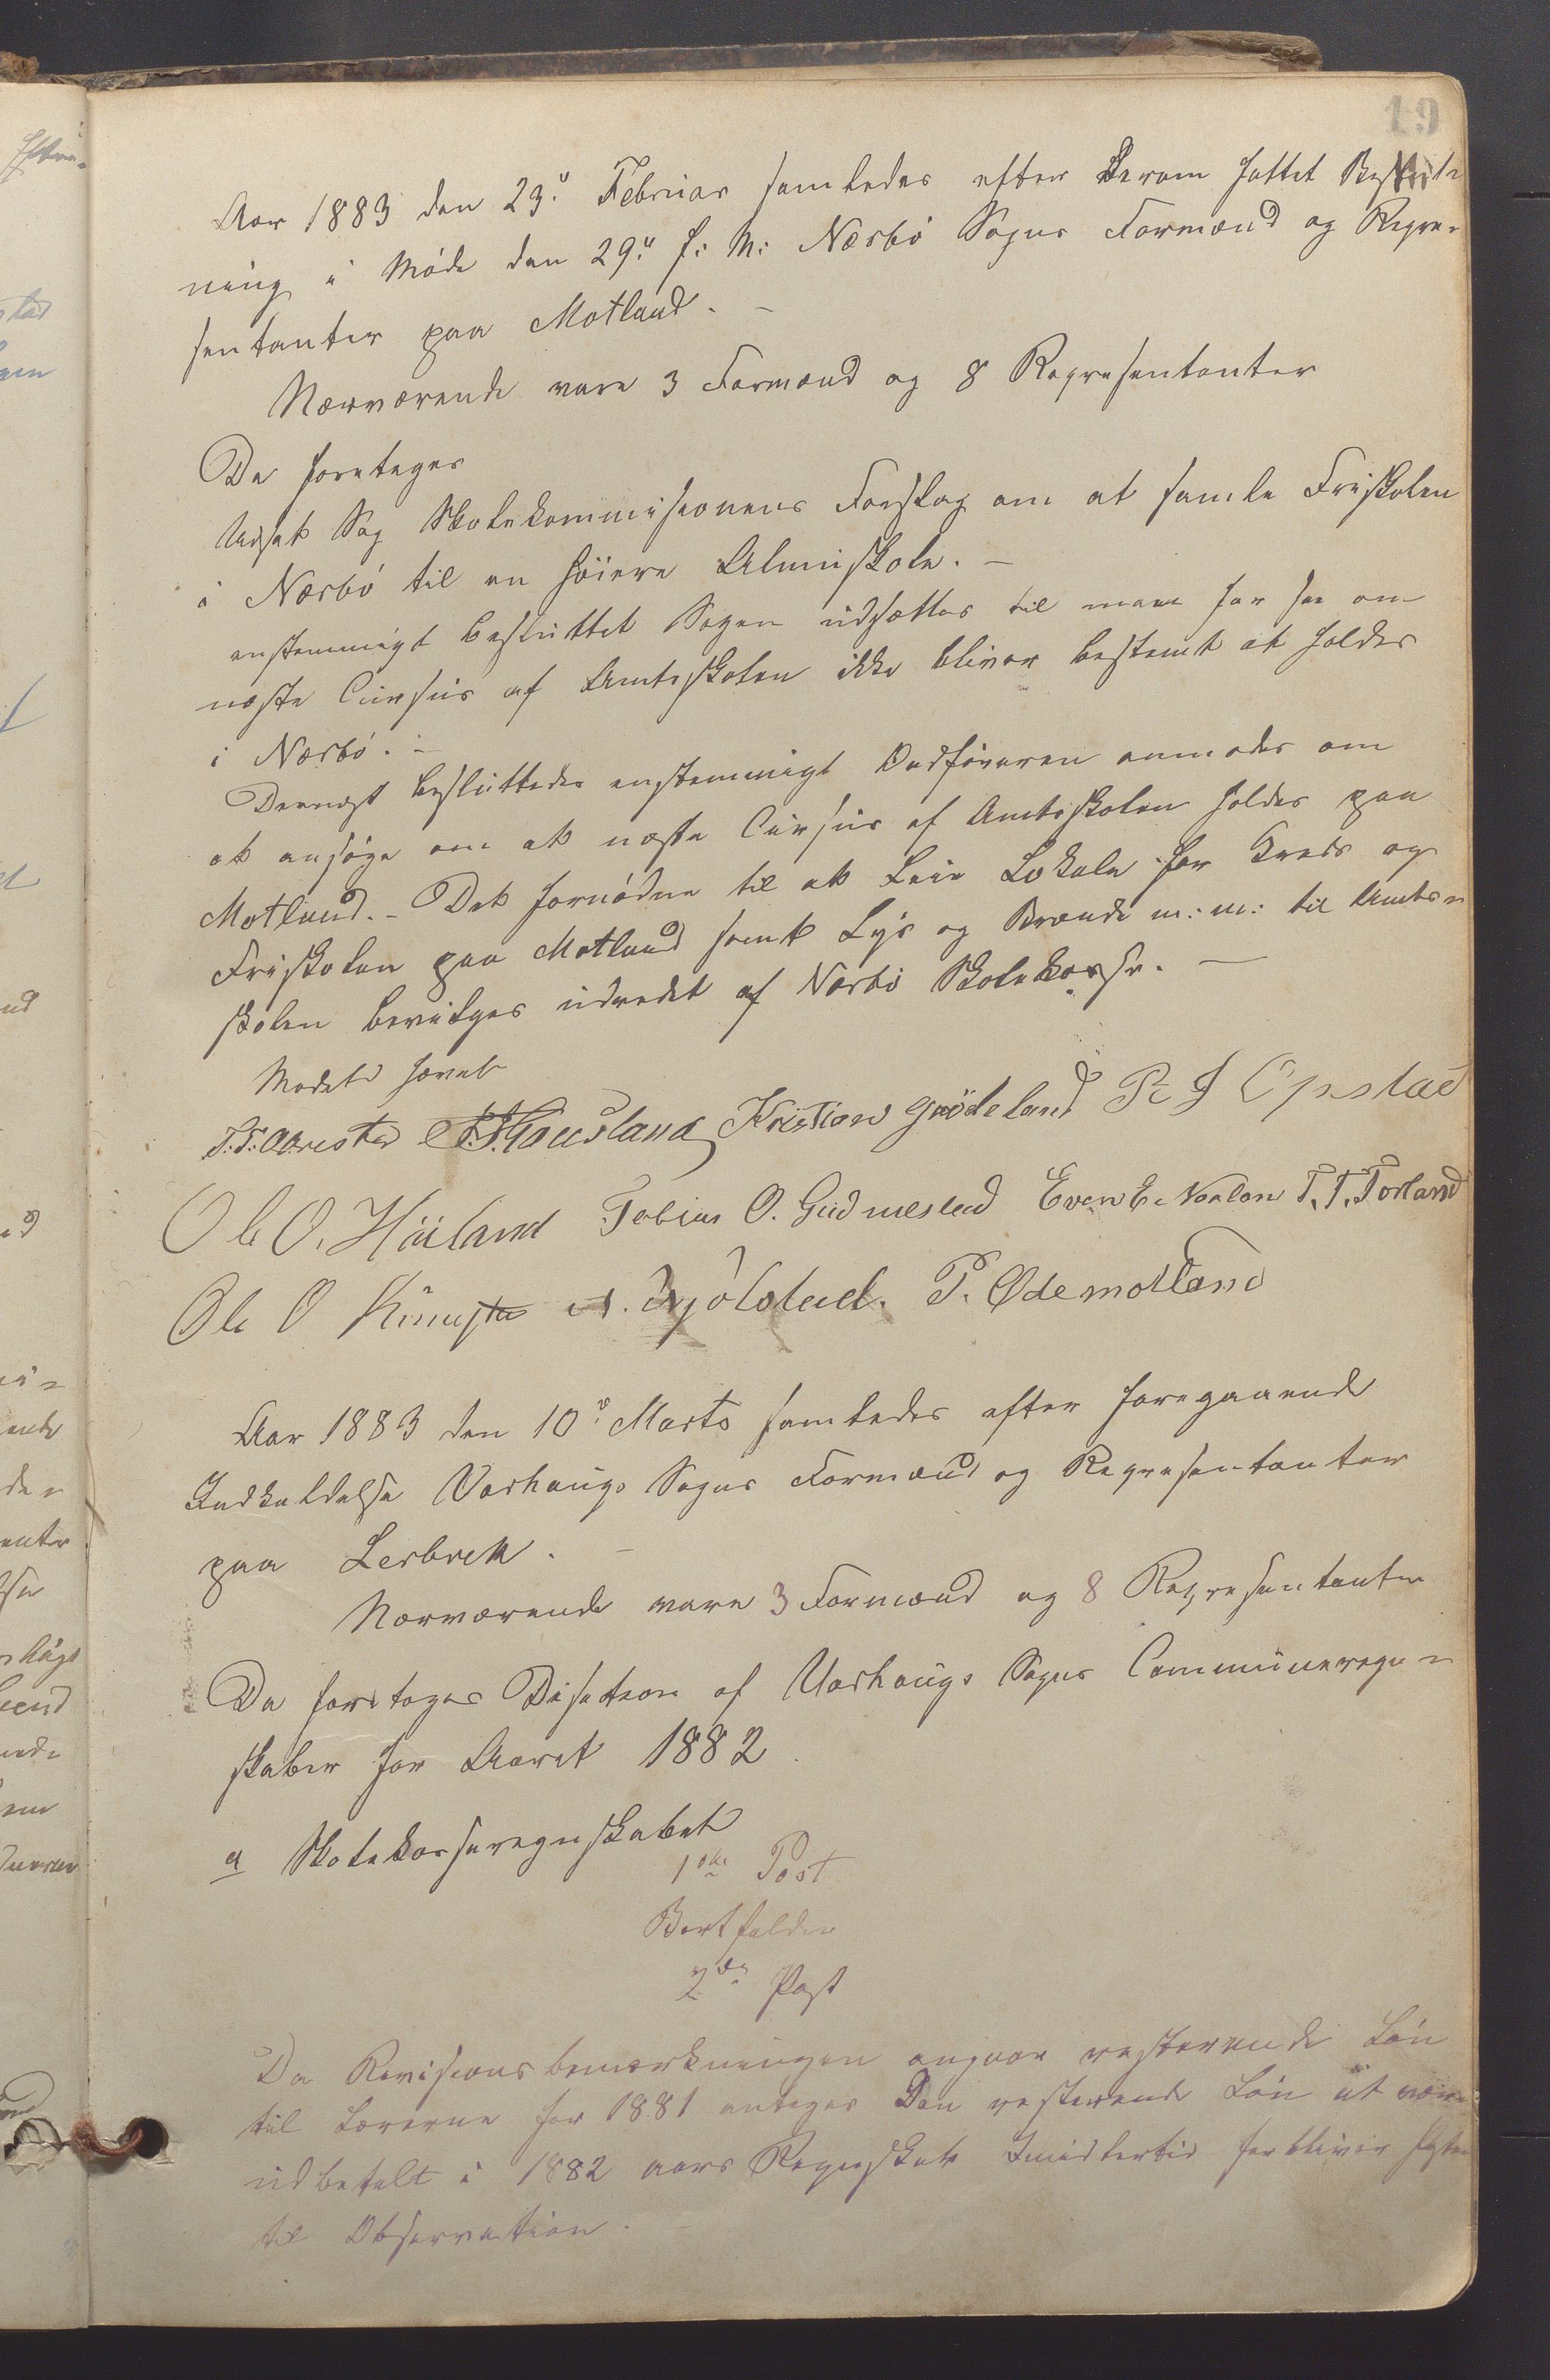 19
Aar 1883 den 23de Februar samledes efter derom fattet Beslut-
ning i Møde den 29de f: M: Nærbø Sogns Formænd og Repræ-
sentanter paa Motland. -
Nærværende vare 3 Formænd og 8 Repræsentanter
Da foretoges
Udsat Sag Skolekommisionens Forslag om at samle Friskolen
i Nærbø til en høiere Almuskole. -
enstemmigt besluttet Sagen udsættes til man faar see om
næste Cursus af Amtsskolen ikke bliver bestemt at holdes
i Nærbø. -
Dernæst besluttedes enstemmigt Ordføreren anmodes om
at ansøge om at næste Cursus af Amtsskolen holdes paa
Motland. - Det fornødne til at Leie Lokale for Kreds og
Friskolen paa Motland samt Lys og Brænde m: m: til Amts-
skolen bevilges udredet af Nærbø Skolekasse. -
Mødet hævet
T. T. Aarestad Hausland Kristian Grødeland P J Opstad
Ole O. Høiland Tobias O. Gudmestad Even E. Norlon T. T. Torland
Ole O A. Njølstad. P. Ødemotland
Aar 1883 den 10de Marts samledes efter foregaaende
Indkaldelse Varhaugs Sogns Formænd og Repræsentanter
paa Lerbrek. -
Nærværende vare 3 Formænd og 8 Repræsentanter
Da foretoges Disition af Varhaugs Sogns Communeregn-
skaber for Aaret 1882
a Skolekasseregnskabet
1ste Post
Bortfalder
2den Post
Da Revisionsbemærkningen angaar resterende Løn
til Lærerne for 1881 antages Den resterende Løn at være
udbetalt i 1882 aars Regnskab Imidlertid forbliver Posten
til Observation. -